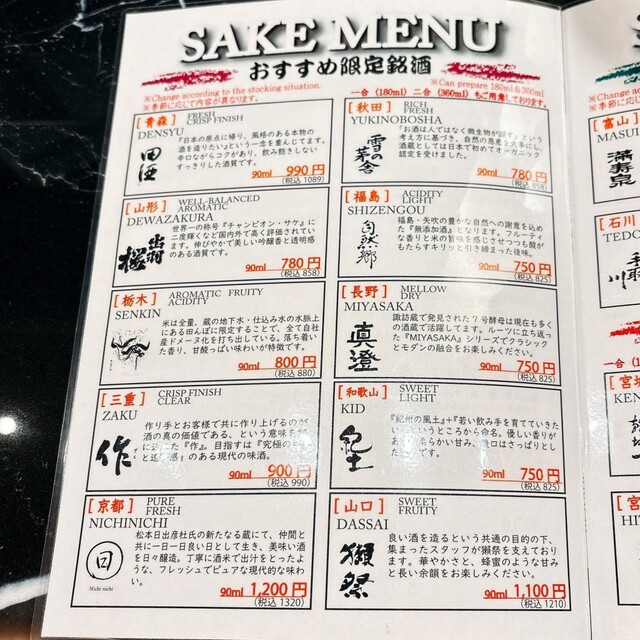 SAKE MENU
おすすめ限定銘酒
※Change according to the stocking situation.
※季節に応じて内容が異なります。
※Can prepare 180ml&360ml
一合 (180ml) 二合 (360ml) もご用意しております。
[青森]
FRESH
CRISP FINISH
DENSYU
田酒
『日本の原点に帰り、風格のある本物の
酒を造りたい』という一念を貫いてます。
辛口ながらコクがあり、飲み飽きしない
すっきりした酒質です。
90ml 990円
(税込 1089)
[山形]
WELL-BALANCED
AROMATIC
DEWAZAKURA
出羽桜
世界一の称号『チャンピオン・サケ』に
二度輝くなど国内外で高く評価されていま
す。伸びやかで美しい吟醸香と透明感
のある酒質です。
90ml 780円
(税込 858)
[栃木]
AROMATIC FRUITY
ACIDITY
SENKIN
米は全量、蔵の地下水・仕込み水の水脈上
にある田んぼに限定することで、全て自社
産ドメーヌ化を打ち出している。落ち着い
た香り、甘酸っぱい味わいが特徴です。
90ml 800円
(税込 880)
[三重]
CRISP FINISH
CLEAR
ZAKU
作
作り手とお客様で共に作り上げるのが
酒の真の価値である、という意味を
『作』。目指すは『究極の
のある現代の味酒。
90ml 900円
(税込 990)
[京都]
PURE
FRESH
NICHINICHI
日
Nichi nichi
松本日出彦杜氏の新たなる蔵にて、仲間と
共に一日一日良い日として生き、美味い酒
を日々醸造。丁寧に酒米で出汁をとったよう
な、フレッシュでピュアな現代的な味わ
い。
90ml 1,200円
(税込 1320)
[秋田]
RICH
FRESH
YUKINOBOSHA
雪の茅舎
「お酒は人ではなく微生物が醸す」という
考え方に基づき、自然の恩恵を大事にし、
酒蔵としては日本で初めてオーガニック
認定を受けました。
90ml 780円
(税込 858)
[福島]
ACIDITY
LIGHT
SHIZENGOU
自然郷
福島・矢吹の豊かな自然への謝意を込め
た『無添加酒』となります。フルーティ
な香りと米の旨味を感じさせつつも酸が
もたらすキリッと引き締まった後味。
90ml 750円
(税込 825)
[長野]
MELLOW
DRY
MIYASAKA
真澄
諏訪蔵で発見された7号酵母は現在も多く
の酒蔵で活躍してます。ルーツに立ち返っ
た『MIYASAKA』シリーズでクラシック
とモダンの融合をお楽しみください。
90ml 750円
(税込 825)
[和歌山]
SWEET
LIGHT
KID
紀土
『紀州の風土』+『若い飲み手を育てていきた
い』というところから命名。優しい香りが
らかい甘み、口はさっぱりとし
た
90ml 750円
(税込 825)
[山口]
SWEET
FRUITY
DASSAI
獺祭
良い酒を造るという共通の目的の下、
集まったスタッフが獺祭を支えており
ます。華やかさと、蜂蜜のような甘み
と長い余韻をお楽しみください。
90ml 1,100円
(税込 1210)
※Change
※季節に応じ
[富山]
MASU
満寿泉
[石川
TEDO
手取川
一合 (1
[宮城
KEN
[宮
HI